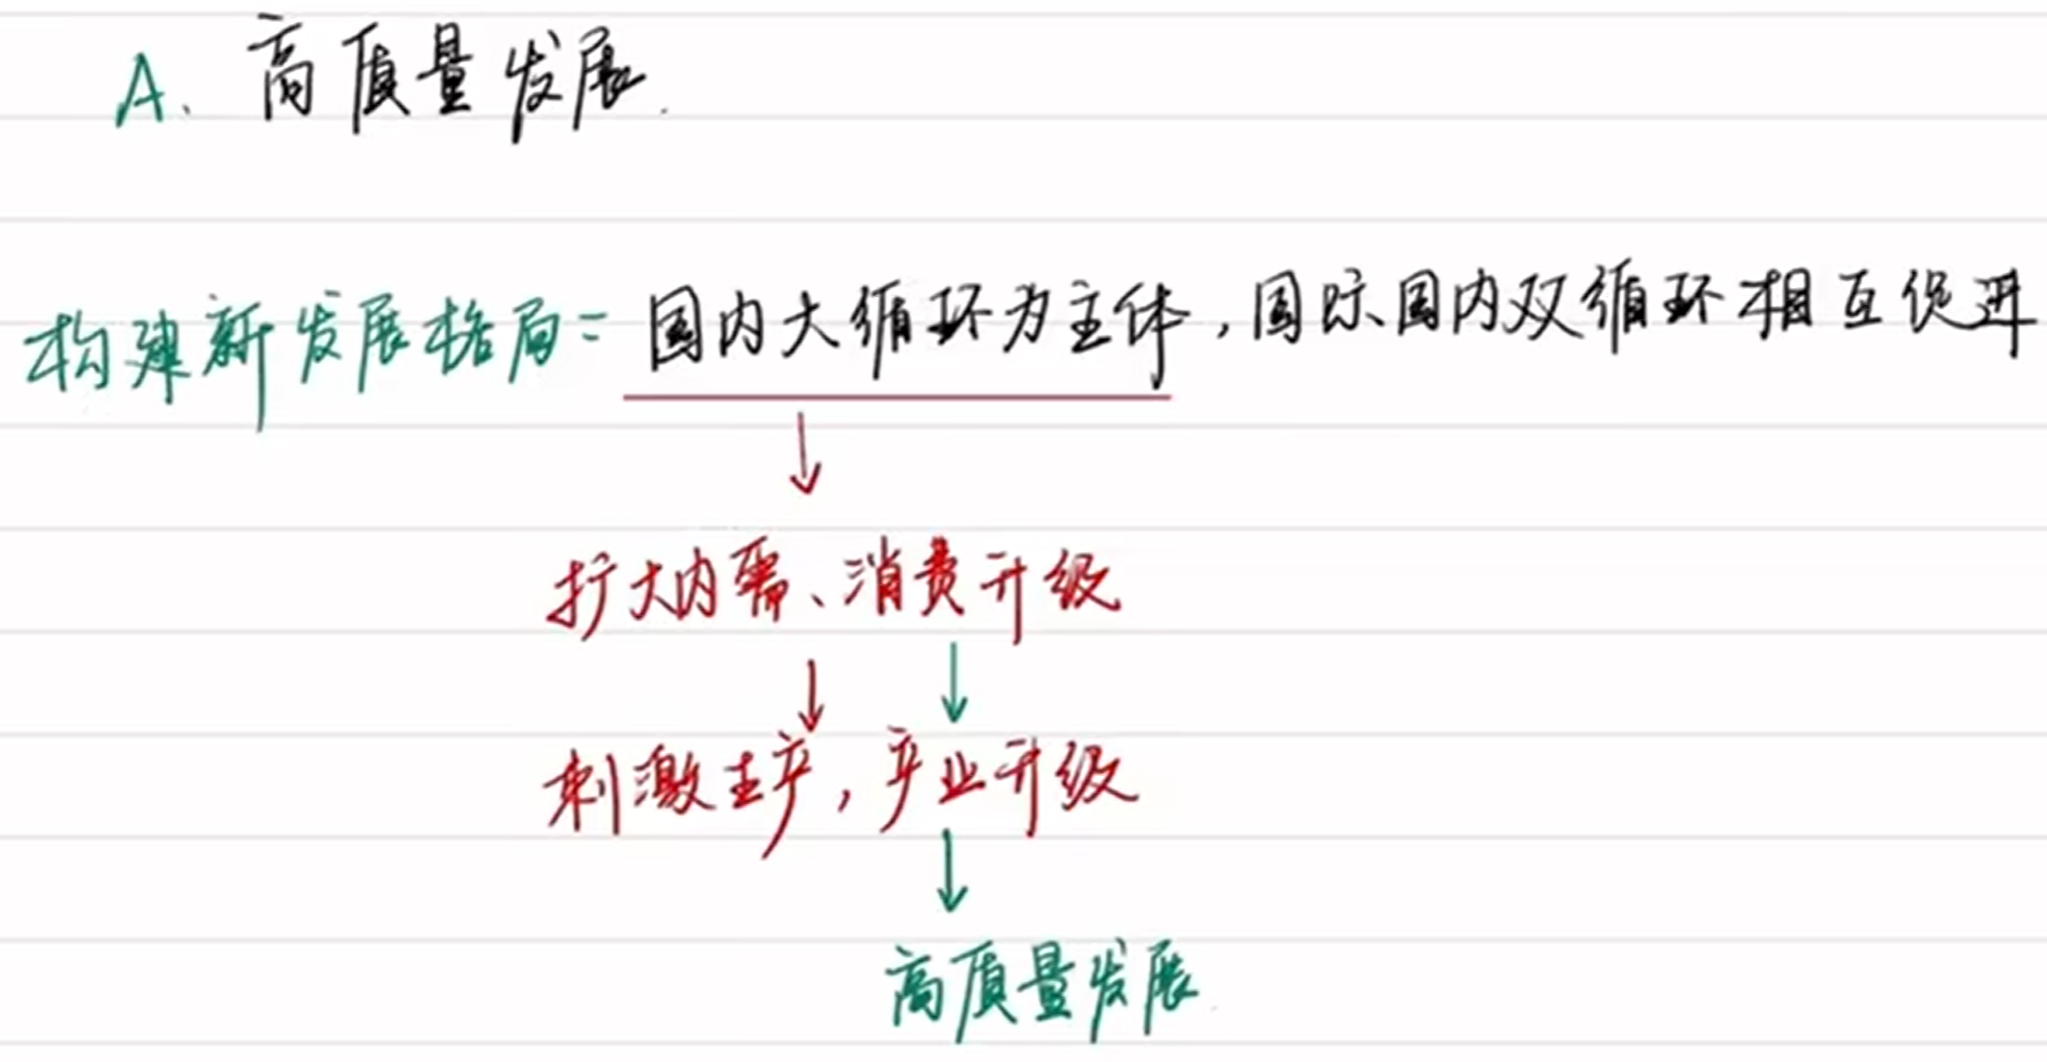 A. 高质量发展.
构建新发展格局=国内大循环为主体,国际国内双循环相互促进
↓
扩大内需、消费升级
↓ ↓
刺激生产,产业升级
↓
高质量发展